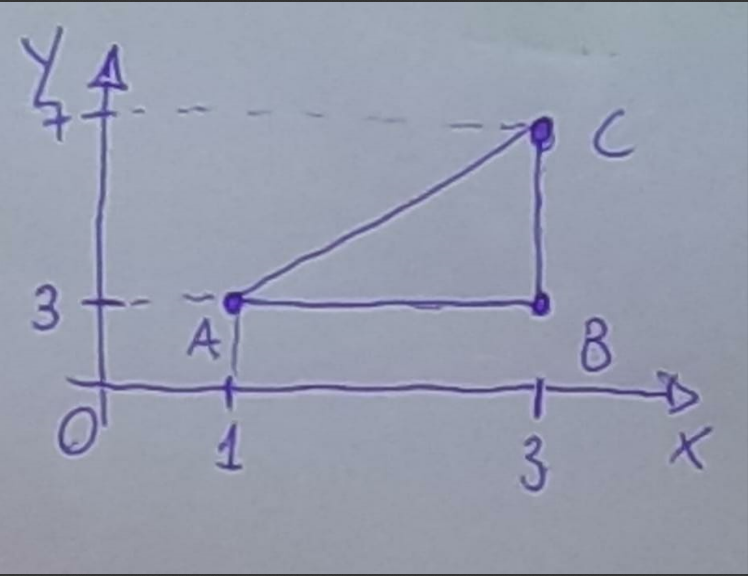 Y
7
C
3
A
B
O
1
3
X